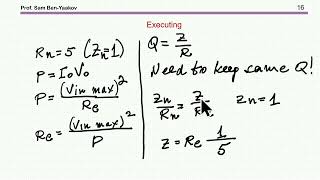 Prof. Sam Ben-Yaakov
16
Executing
Rn = 5 (Zn=1)
P = IoVo
P = (Vin max)^2 / Re
Re = (Vin max)^2 / P
Q = Z / R
Need to keep same Q!
Zn / Rn = Z / R    Zn = 1
Z = Re 1 / 5